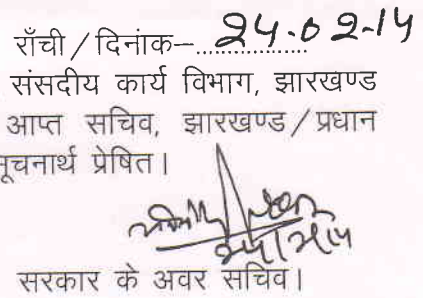 राँची / दिनांक–..................24.02-14
संसदीय कार्य विभाग, झारखण्ड
आप्त सचिव, झारखण्ड / प्रधान
सूचनार्थ प्रेषित।
24/2/14
सरकार के अवर सचिव।